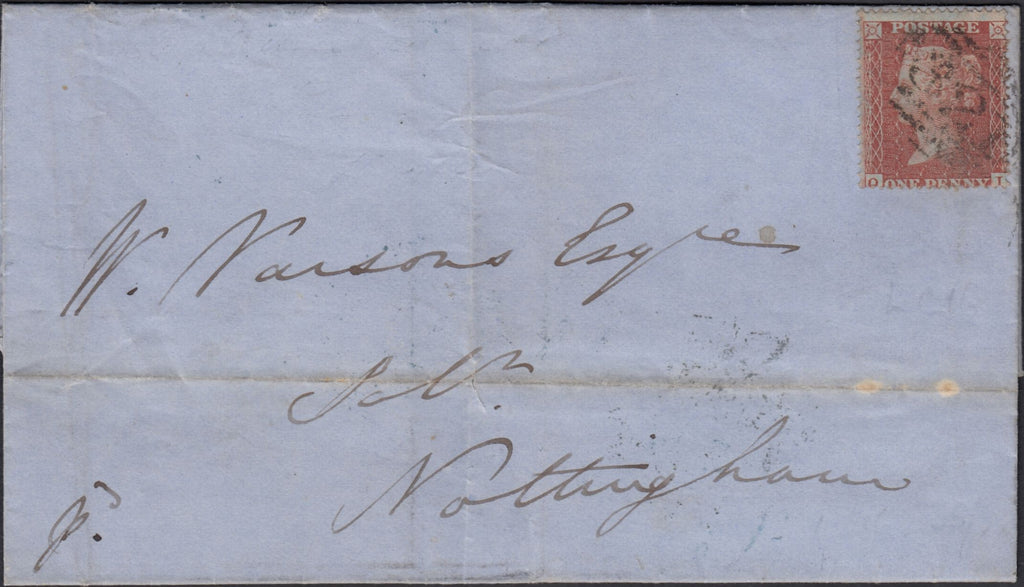 POSTAGE
ONE PENNY
W. Parsons Esqre
Solr.
Nottingham
pd.